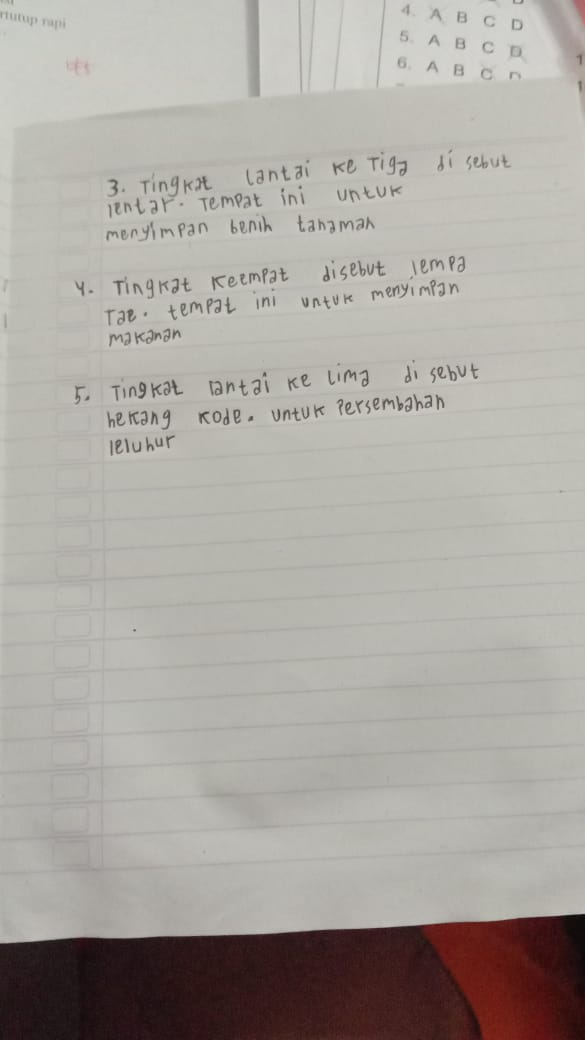 rtutup rapi
4. A B C D
5. A B C D
6. A B C D
3. Tingkat lantai ke Tiga di sebut
lentar. Tempat ini untuk
menyimpan benih tanaman
4. Tingkat Keempat disebut lempa
Tae. tempat ini untuk menyimpan
makanan
5. Tingkat lantai ke lima di sebut
hekang kode. untuk Persembahan
leluhur